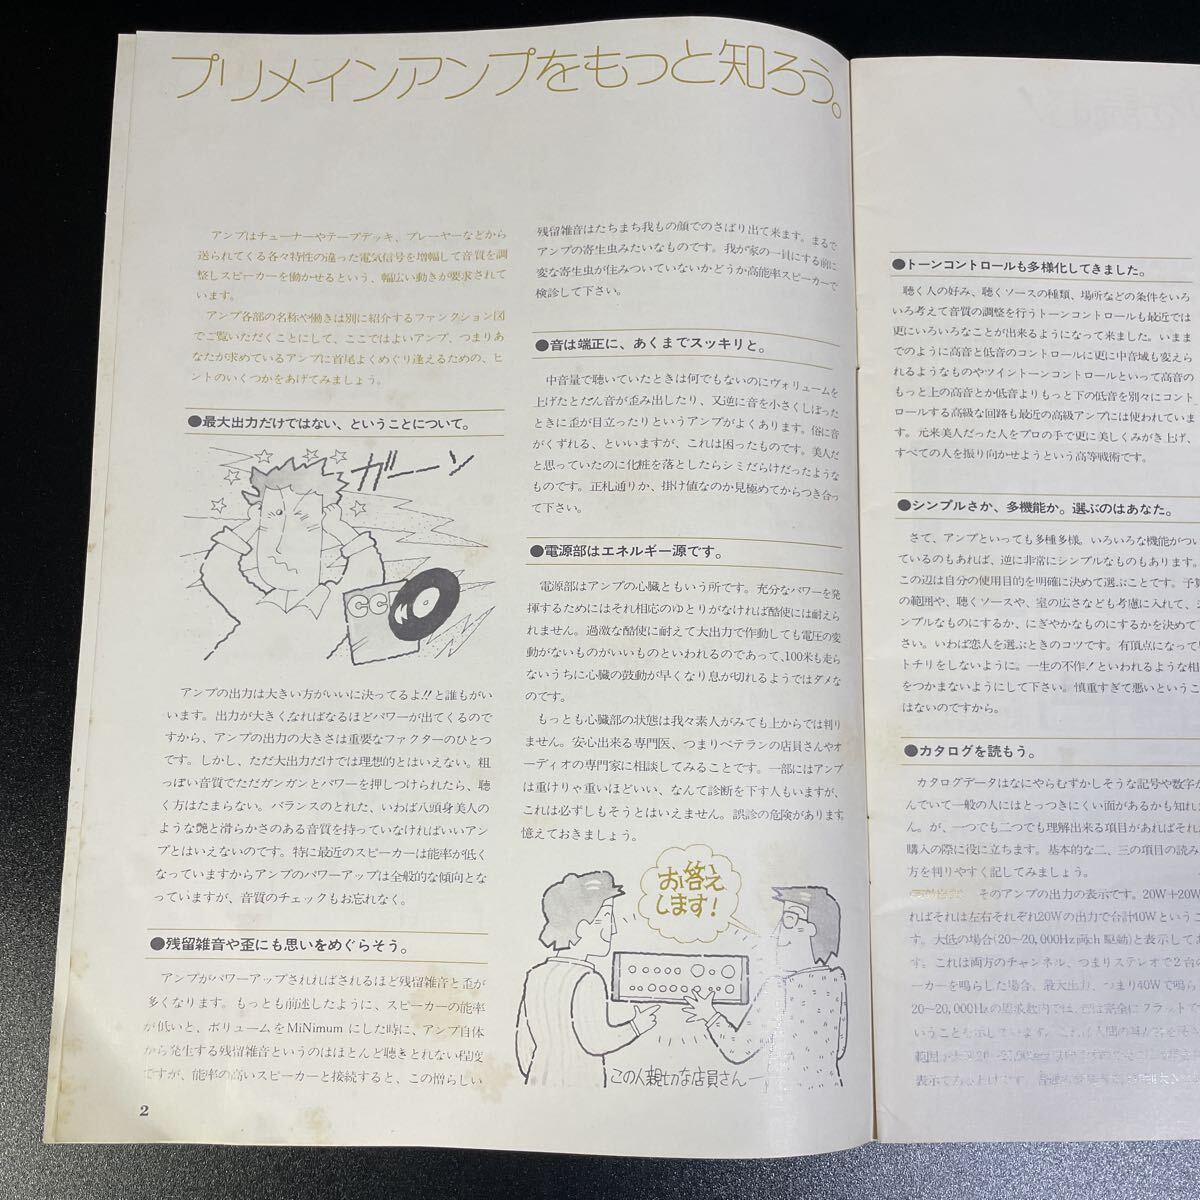 プリメインアンプをもっと知ろう。
アンプはチューナーやテープデッキ、プレーヤーなどから
送られてくる各々特性の違った電気信号を増幅して音質を調
整しスピーカーを働かせるという、幅広い動きが要求されて
います。
アンプ各部の名称や働きは別に紹介するファンクション図
でご覧いただくことにして、ここではよいアンプ、つまりあ
なたが求めているアンプに首尾よくめぐり逢えるための、ヒ
ントのいくつかをあげてみましょう。
●最大出力だけではない、ということについて。
ガーン
アンプの出力は大きい方がいいに決ってるよ!!と誰もがい
います。出力が大きくなればなるほどパワーが出てくるので
すから、アンプの出力の大きさは重要なファクターのひとつ
です。しかし、ただ大出力だけでは理想的とはいえない。粗
っぽい音質でただガンガンとパワーを押しつけられたら、聴
く方はたまらない。バランスのとれた、いわば八頭身美人の
ような艶と滑らかさのある音質を持っていなければいいアン
プとはいえないのです。特に最近のスピーカーは能率が低く
なっていますからアンプのパワーアップは全般的な傾向とな
っていますが、音質のチェックもお忘れなく。
●残留雑音や歪にも思いをめぐらそう。
アンプがパワーアップされればされるほど残留雑音と歪が
多くなります。もっとも前述したように、スピーカーの能率
が低いと、ボリュームをMiNimumにした時に、アンプ自体
から発生する残留雑音というのはほとんど聴きとれない程度
ですが、能率の高いスピーカーと接続すると、この憎らしい
2
残留雑音はたちまち我もの顔でのさばり出て来ます。まるで
アンプの寄生虫みたいなものです。我が家の一員にする前に
変な寄生虫が住みついていないかどうか高能率スピーカーで
検診して下さい。
●音は端正に、あくまでスッキリと。
中音量で聴いていたときは何でもないのにヴォリュームを
上げたとたん音が歪み出したり、又逆に音を小さくしぼった
ときに歪が目立ったりというアンプがよくあります。俗に音
がくずれる、といいますが、これは困ったものです。美人だ
と思っていたのに化粧を落としたらシミだらけだったような
ものです。正札通りか、掛け値なのか見極めてからつき合っ
て下さい。
●電源部はエネルギー源です。
電源部はアンプの心臓ともいう所です。充分なパワーを発
揮するためにはそれ相応のゆとりがなければ酷使には耐えら
れません。過激な酷使に耐えて大出力で作動しても電圧の変
動がないものがいいものといわれるのであって、100米も走ら
ないうちに心臓の鼓動が早くなり息が切れるようではダメな
のです。
もっとも心臓部の状態は我々素人がみても上からでは判り
ません。安心出来る専門医、つまりベテランの店員さんやオ
ーディオの専門家に相談してみることです。一部にはアンプ
は重けりゃ重いほどいい、なんて診断を下す人もいますが、
これは必ずしもそうとはいえません。誤診の危険があります。
憶えておきましょう。
お答え
します!
この人親切な店員さん
●トーンコントロールも多様化してきました。
聴く人の好み、聴くソースの種類、場所などの条件をいろ
いろ考えて音質の調整を行うトーンコントロールも最近では
更にいろいろなことが出来るようになって来ました。いまま
でのように高音と低音のコントロールに更に中音域も変えら
れるようなものやツイントーンコントロールといって高音の
もっと上の高音とか低音よりもっと下の低音を別々にコント
ロールする高級な回路も最近の高級アンプには使われていま
す。元来美人だった人をプロの手で更に美しくみがき上げ、
すべての人を振り向かせようという高等戦術です。
●シンプルさか、多機能か。選ぶのはあなた。
さて、アンプといっても多種多様。いろいろな機能がつい
ているのもあれば、逆に非常にシンプルなものもあります。
この辺は自分の使用目的を明確に決めて選ぶことです。予算
の範囲や、聴くソースや、室の広さなども考慮に入れて、
ンプルなものにするか、にぎやかなものにするかを決めて
さい。いわば恋人を選ぶときのコツです。有頂点になって
トチリをしないように。一生の不作!といわれるような相
をつかまないようにして下さい。慎重すぎて悪いというこ
はないのですから。
●カタログを読もう。
カタログデータはなにやらむずかしそうな記号や数字が
んでいて一般の人にはとっつきにくい面があるかも知れ
ん。が、一つでも二つでも理解出来る項目があればそれ
購入の際に役に立ちます。基本的な二、三の項目の読み
方を判りやすく記してみましょう。
そのアンプの出力の表示です。20W+20W
ればそれは左右それぞれ20Wの出力で合計40Wというこ
す。大低の場合(20〜20,000Hz両ch駆動)と表示してお
す。これは両方のチャンネル、つまりステレオで2台の
ーカーを鳴らした場合、最大出力、つまり40Wで鳴ら
20〜20,000Hzの周波数内では、